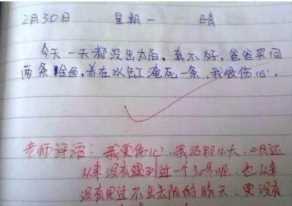 2月30日 星期一 晴
今天一天都没出太阳，真不好，爸爸买回
两条鲸鱼，养在水缸淹死一条，我很伤心。
老师评语：我更伤心，我活那么大，二月还
从来没有遇到过一个30号呢，也从来
没有见过不出太阳的晴天，更没有